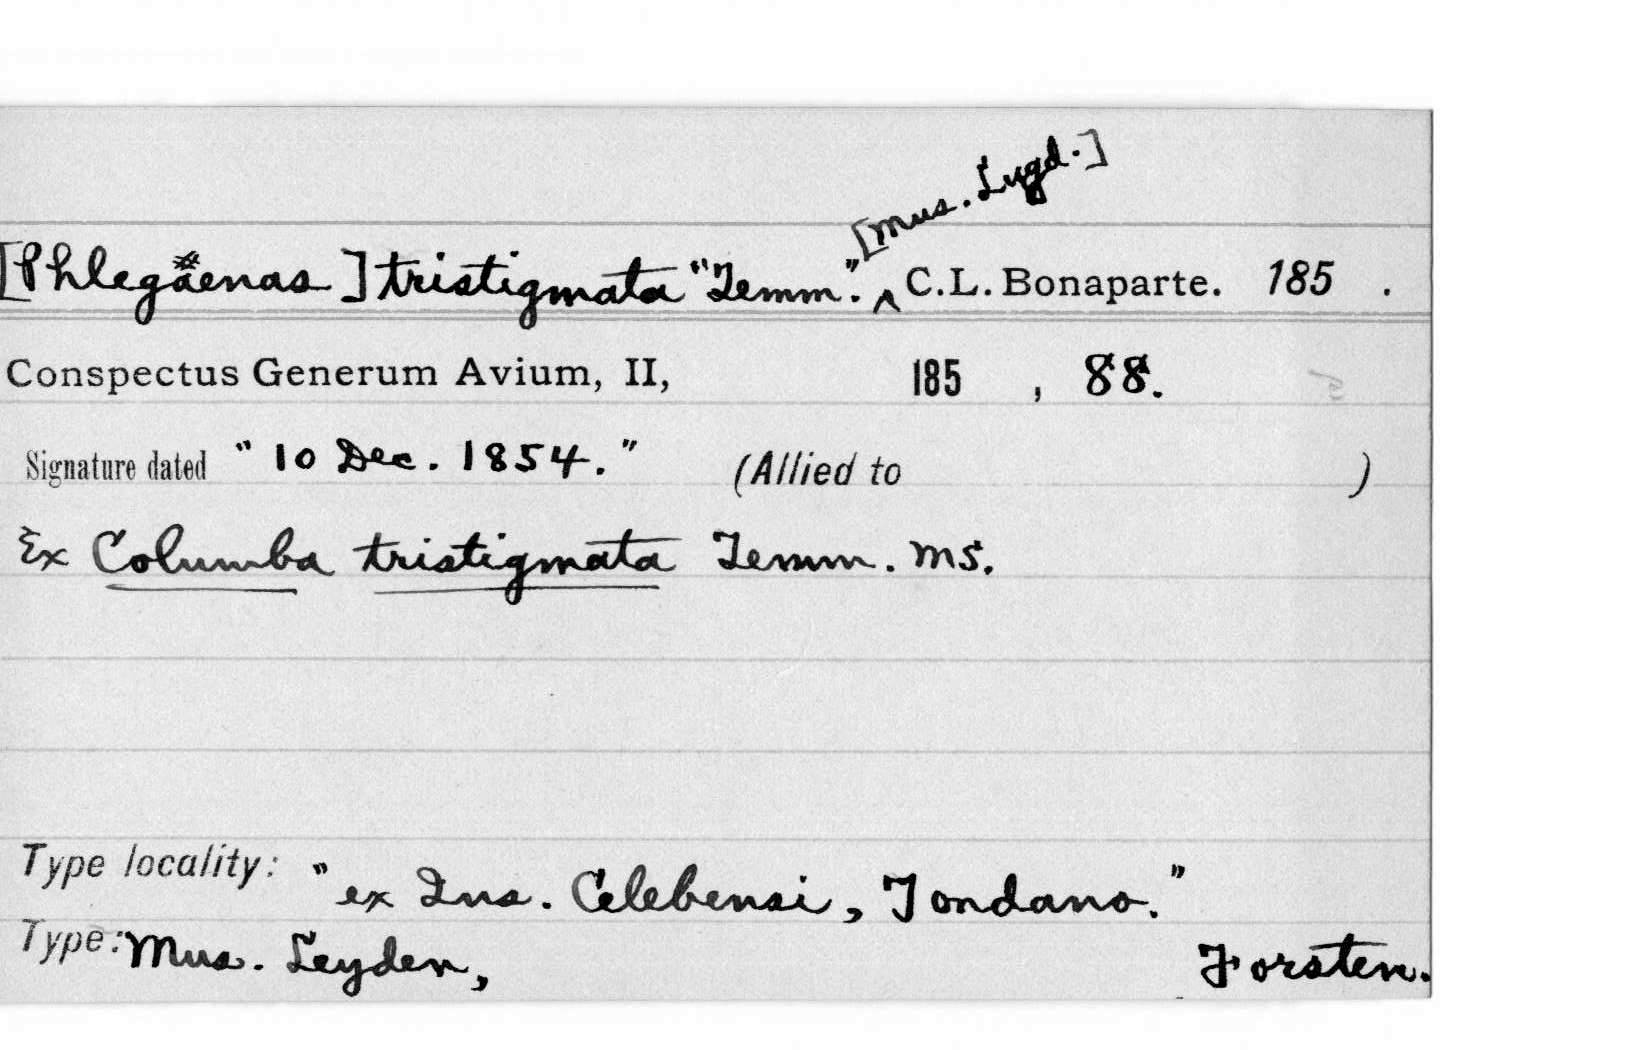 [Mus. Lugd.]
[Phlegaenas] tristigmata "Temm." ^ C.L. Bonaparte. 185 .
Conspectus Generum Avium, II, 185 , 88.
Signature dated "10 Dec. 1854." (Allied to )
Ex Columba tristigmata Temm. MS.
Type locality: "ex Ins. Celebensi, Tondano."
Type: Mus. Leyden, Forsten.